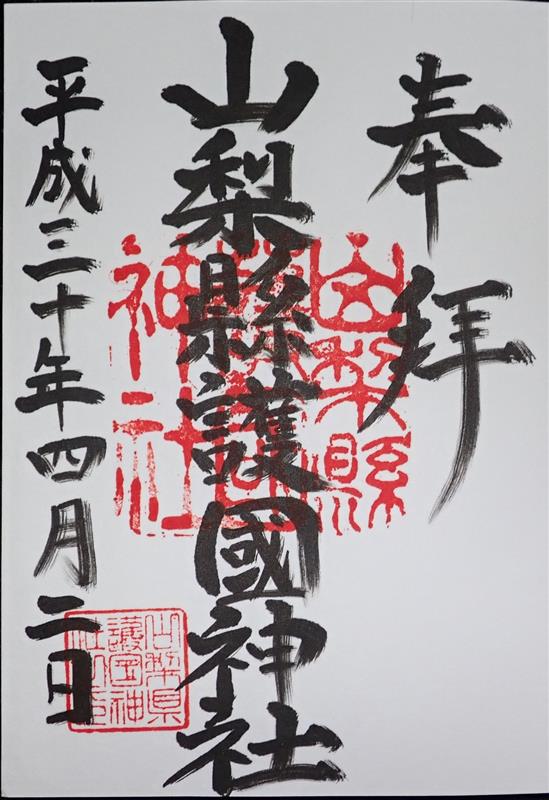 奉拝
山梨縣護國神社
平成三十年四月二日
山梨縣
護國
神社
山梨県
護国神